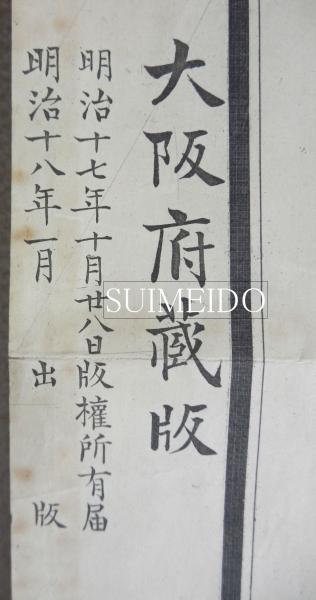 大阪府蔵版
明治十七年十月廿八日版權所有届
明治十八年一月 出版
SUIMEIDO